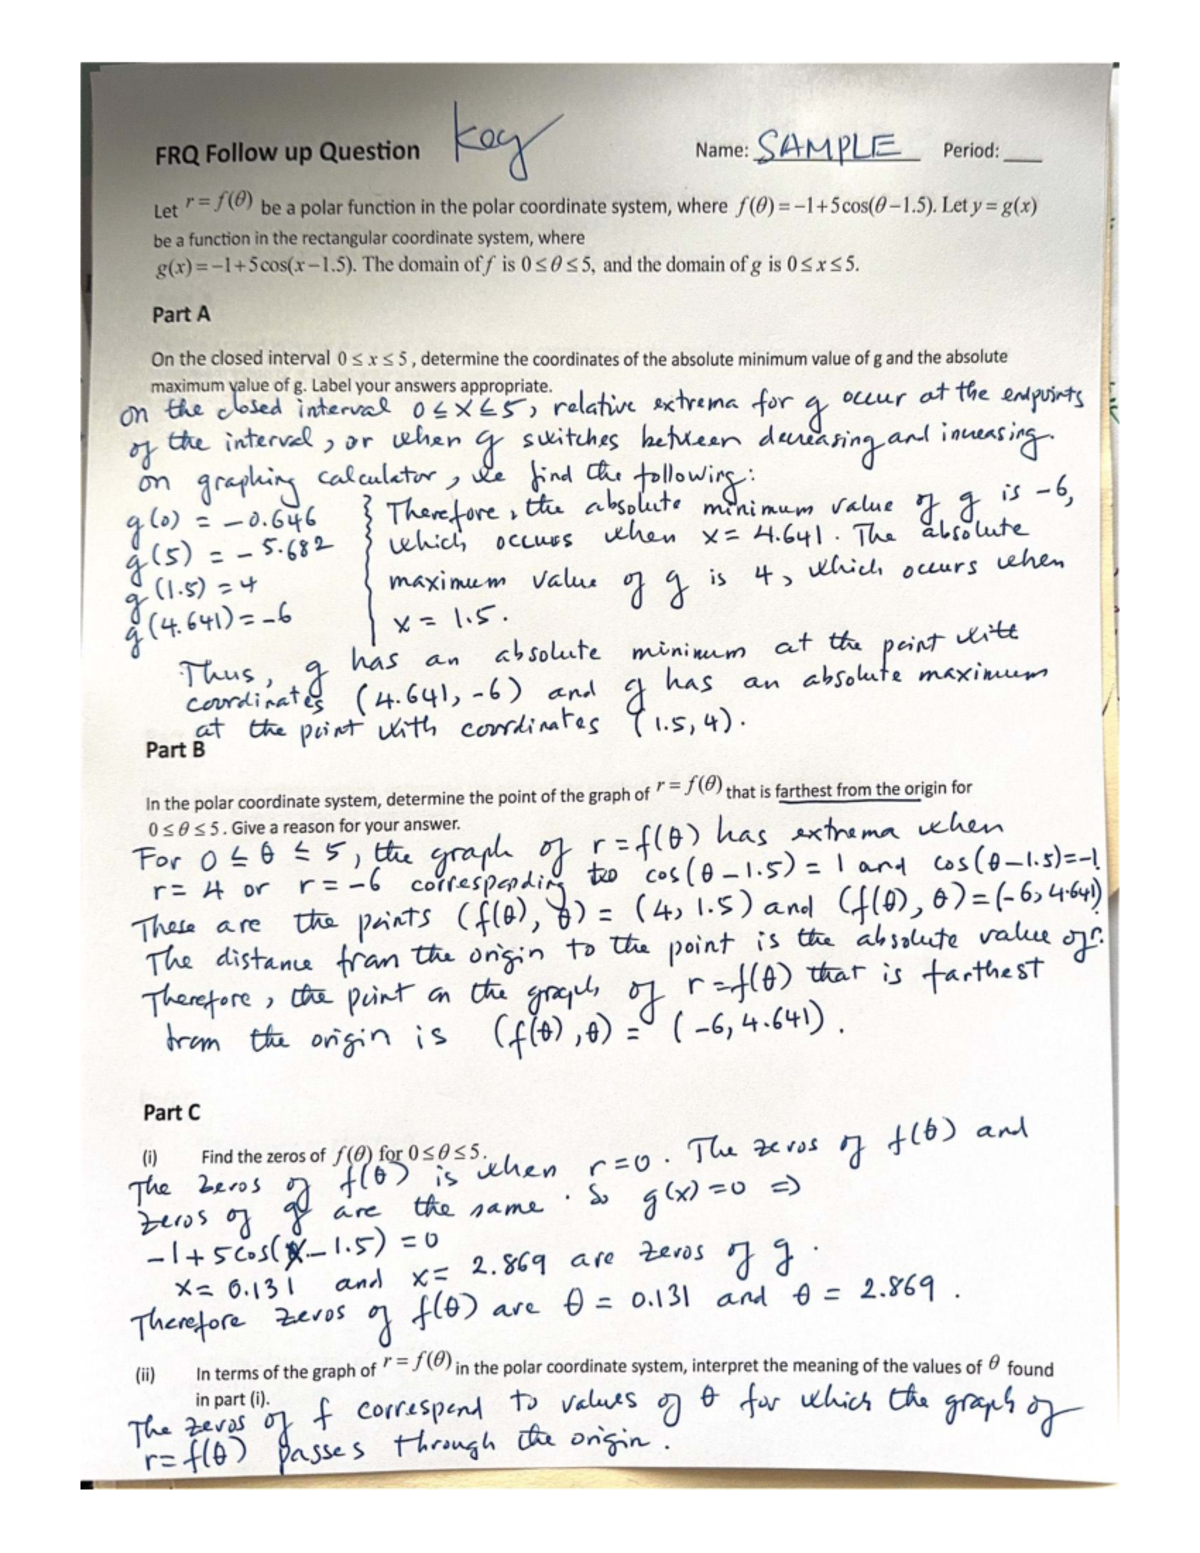 FRQ Follow up Question key Name: SAMPLE Period: ___
Let r = f(θ) be a polar function in the polar coordinate system, where f(θ) = −1+5cos(θ−1.5). Let y = g(x)
be a function in the rectangular coordinate system, where
g(x) = −1+5cos(x−1.5). The domain of f is 0≤θ≤5, and the domain of g is 0≤x≤5.
Part A
On the closed interval 0≤x≤5, determine the coordinates of the absolute minimum value of g and the absolute
maximum value of g. Label your answers appropriate.
on the closed interval 0≤x≤5, relative extrema for g occur at the endpoints
of the interval, or when g switches between decreasing and increasing.
on graphing calculator, we find the following:
g(0) = −0.646
g(5) = −5.682
g(1.5) = 4
g(4.641) = −6
Therefore, the absolute minimum value of g is −6,
which occurs when x = 4.641. The absolute
maximum value of g is 4, which occurs when
x = 1.5.
Thus, g has an absolute minimum at the point with
coordinates (4.641, −6) and g has an absolute maximum
at the point with coordinates (1.5, 4).
Part B
In the polar coordinate system, determine the point of the graph of r = f(θ) that is farthest from the origin for
0≤θ≤5. Give a reason for your answer.
For 0≤θ≤5, the graph of r=f(θ) has extrema when
r= 4 or r= −6 corresponding to cos(θ−1.5) = 1 and cos(θ−1.5)=−1.
These are the points (f(θ), θ) = (4, 1.5) and (f(θ), θ)=(−6, 4.641).
The distance from the origin to the point is the absolute value of r.
Therefore, the point on the graph of r=f(θ) that is farthest
from the origin is (f(θ), θ) = (−6, 4.641).
Part C
(i) Find the zeros of f(θ) for 0≤θ≤5.
The zeros of f(θ) is when r=0. The zeros of f(θ) and
zeros of g are the same. So g(x) =0 ⇒
−1+5cos(x−1.5) = 0
x= 0.131 and x= 2.869 are zeros of g.
Therefore zeros of f(θ) are θ = 0.131 and θ = 2.869.
(ii) In terms of the graph of r = f(θ) in the polar coordinate system, interpret the meaning of the values of θ found
in part (i).
The zeros of f correspond to values of θ for which the graph of
r= f(θ) passes through the origin.